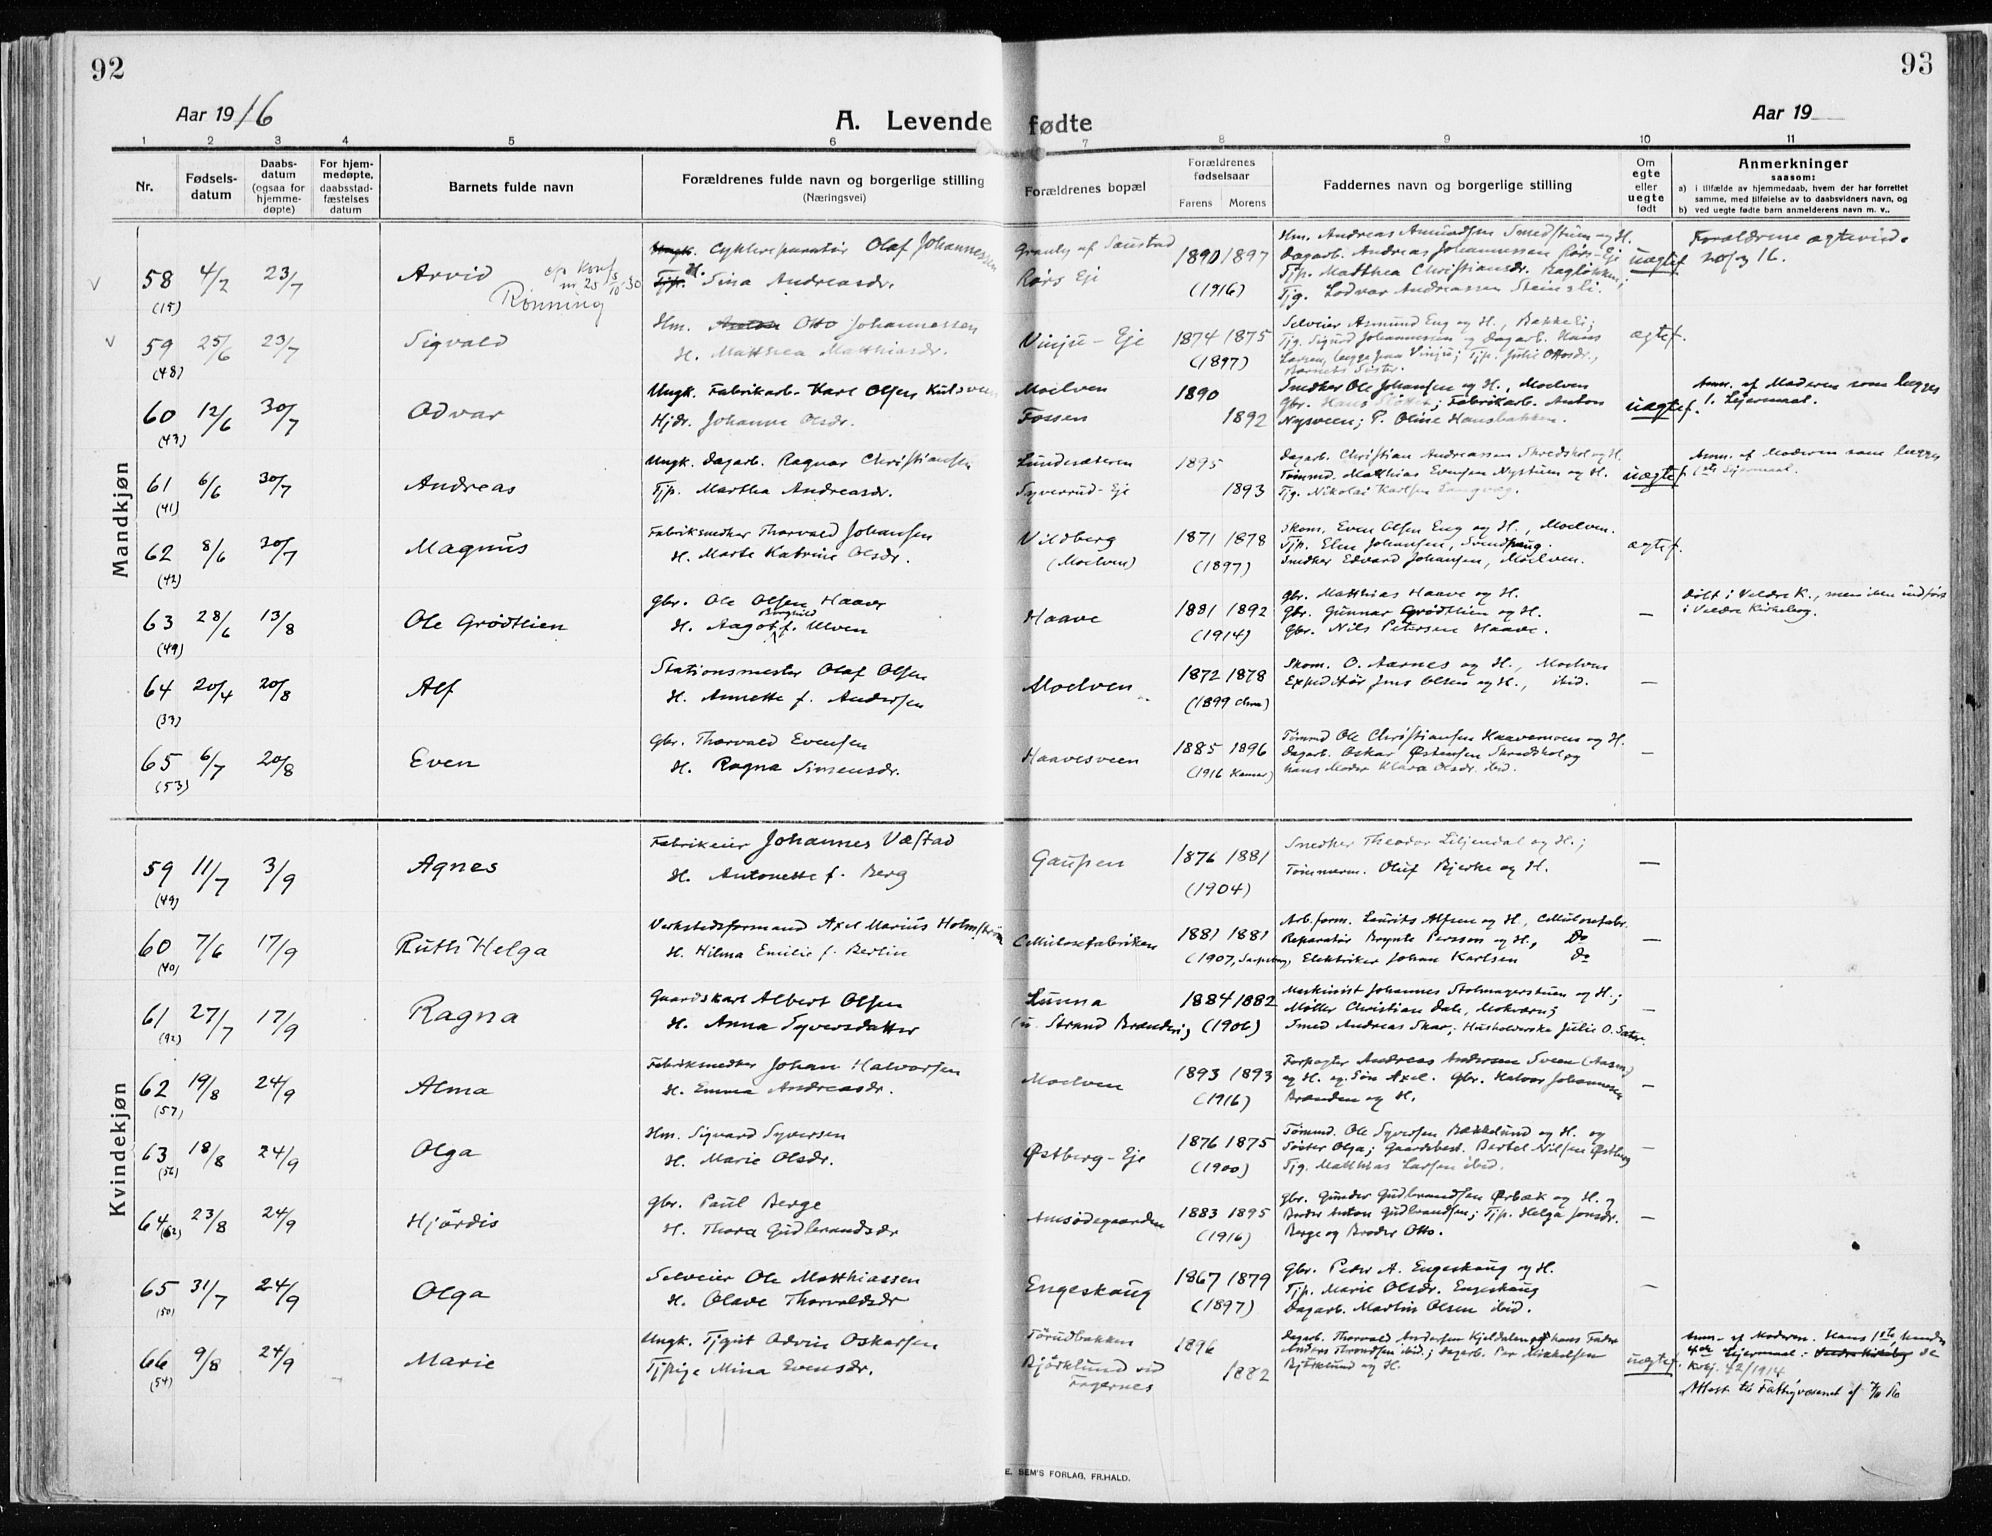 92
93
Aar 1916
A. Levende fødte
Aar 19
1 2 3 4 5 6 7 8 9 10 11
Nr.
Fødsels-
datum
Daabs-
datum
(ogsaa for
hjemme-
døpte)
For hjem-
medøpte,
daabsstad-
fæstelses
datum
Barnets fulde navn
Forældrenes fulde navn og borgerlige stilling
(Næringsvei)
Forældrenes bopæl
Forældrenes
fødselsaar
Farens Morens
Faddernes navn og borgerlige stilling
Om
egte
eller
uegte
født
Anmerkninger
saasom:
a) i tilfælde av hjemmedaab, hvem der har forrettet
samme, med tilføielse av to daabsvidners navn, og
b) ved uegte fødte barn anmelderens navn m. v..
Mandkjøn
58 4/7 23/7 Arvid
(15)
Rønning
Ungk. Cyklereparatør Olaf Johannessen
Tjp. H. Sina Andreasdr.
Rørs Eje
1890 1897
(1916)
Hm. Andreas Amundsen Smedstuen og H.
Dagarb. Andreas Johannessen Rørs-Eje
Tjp. Matthea Christiansdr. Bagløkken;
Tjg. Lodvar Andreassen Steinsli.
uægtef.
59 25/6 23/7 Sigvald
(48)
Hm. Otto Johannessen
H. Matthea Matthiasdr.
Vinju-Eje
1874 1875
(1897)
Selveier Asmund Eng og H., Bakkeli;
Tjg. Sigurd Johannessen og Dagarb. Hans
Larsen, begge paa Vinju; Tjp. Julie Ottosdr.,
Barnets Søster.
ægtef.
60 12/6 30/7 Odvar
(43)
Ungk. Fabrikarb. Karl Olsen
Hjdr. Johanne Olsdr.
Moelven
Fossen
1890
1892
Snedker Ole Johansen og H., Moelven
Gbr. Hans; Fabrikarb. Anton
Nysveen; P. Oline Hansbakken.
uægtef.
Anm. af Moderen som begges
1. Lejermaal.
61 6/6 30/7 Andreas
(41)
Ungk. Dagarb. Ragnar Christiansen
Tjp. Martha Andreasdr.
Lundesæteren
Syverrud-Eje
1895
1893
Dagarb. Christian Andreassen Skredshol og H.
Tømmd. Matthias Evensen Nystuen og H.
Tjg. Nikolai Karlsen
uægtef.
Anm. af Moderen som begges
1ste Lejermaal.
62 8/6 30/7 Magnus
(42)
Fabriksnedker Thorvald Johansen
H. Marte Katrine Olsdr.
Vildberg
(Moelven)
1871 1878
(1897)
Skom. Even Olsen Eng og H., Moelven.
Tjp. Elen Johansen,
Snedker Edvard Johansen, Moelven.
ægtef.
63 28/6 13/8 Ole Grødtlien
(49)
Gbr. Ole Olsen Haave
Borghild
H. Aagot f. Ulven
Haave
1881 1892
(1914)
Gbr. Matthias Haave og H.
Gbr. Gunnar Grødtlien og H.
Gbr. Nils Petersen Haave.
—
Døbt i Veldre K., men ikke indført
i Veldre Kirkebog.
64 20/4 20/8 Alf
(33)
Stationsmester Olaf Olsen
H. Annette f. Andersen
Moelven
1872 1878
(1899 Chra)
Skom. O. Aarnes og H., Moelven
Expeditør Jens Olsen og H., ibid.
—
65 6/7 20/8 Even
(53)
Gbr. Thorvald Evensen
H. Ragna Simensdr.
Haavesveen
1885 1896
(1916)
Tømmd Ole Christiansen Haavemoen og H.
Dagarb. Oskar Østensen Skredshol og
hans Moder Klara Olsdr. ibid.
—
Kvindekjøn
59 11/7 3/9 Agnes
(49)
Fabrikeier Johannes Væstad
H. Antonette f. Berg
Gaupen
1876 1881
(1904)
Snedker Theodor Liljendal og H.;
Tømmerm. Oluf Bjerke og H.
—
60 7/6 17/9 Ruth Helga
(40)
Verkstedsformand Axel Marius Holmstrøm
H. Hilma Emilie f. Berlin
Cellulosefabriken
1881 1881
(1907, Sarpsborg)
Arb.form. Laurits Alfsen og H., Cellulosefabr.
Reparatør Brynte Persson og H., Do
Elektriker Johan Karlsen Do
—
61 27/7 17/9 Ragna
(92)
Gaardskarl Albert Olsen
H. Anna Syversdatter
Lunna
(u. Strand Brænderi)
1884 1882
(1906)
Maskinist Johannes Stolmagerstuen og H.;
Møller Christian Dale, Mokværn;
Smed Andreas Skar; Husholderske Julie O. Sæter.
—
62 19/8 24/9 Alma
(57)
Fabriksnedker Johan Halvorsen
H. Emma Andreasdr.
Moelven
1893 1893
(1916)
Forpagter Andreas Andersen Sveen (Aasen)
og H. og Søn Axel. Gbr. Halvor Johannesen
Brænden og H.
—
63 18/8 24/9 Olga
(56)
Hm. Sigvard Syversen
H. Marie Olsdr.
Østberg-Eje
1876 1875
(1900)
Tømmd. Ole Syversen Bækkelund og H. og
Søster Olga; Gaardsbest. Bertel Nilsen Østberg
Tjg. Matthias Larsen ibid.
—
64 (62) 23/8 24/9 Hjördis
Gbr. Paul Berge
H. Thora Gudbrandsdr
Amsødegaarden
1883 1895
(1916)
Gbr. Gunder Gudbrandsen Ørbæk og H. og
Broder Anton Gudbrandsen; Tjp. Helga Jonsdr.
Berge og Broder Otto.
—
65 31/7 24/9 Olga
(50)
Selveier Ole Matthiassen
H. Olave Thorvaldsdr
Engeskaug
1867 1879
(1897)
Gbr. Peder A. Engeskaug og H.
Tjp. Marie Olsdr. Engeskaug
Dagarb. Martin Olsen ibid.
—
66 9/8 24/9 Marie
(54)
Ungk. Tjgut Odvin Oskarsen
Tjpige Mina Evensdr.
Törudbakken
Bjørklund ved
Fagernes
1896
1882
Dagarb. Thorvald Andersen Kjeldalen og hans Fader
Anders Throndsen ibid.; Dagarb. Per Mikkelsen
Bjørklund og H.
uægtef.
Anm. af Moderen. Hans 1ste hendes
Lejermaal.
Kvkj. 42/1914
Attest til Fattigvæsenet
E. SEM'S FORLAG, FR.HALD.